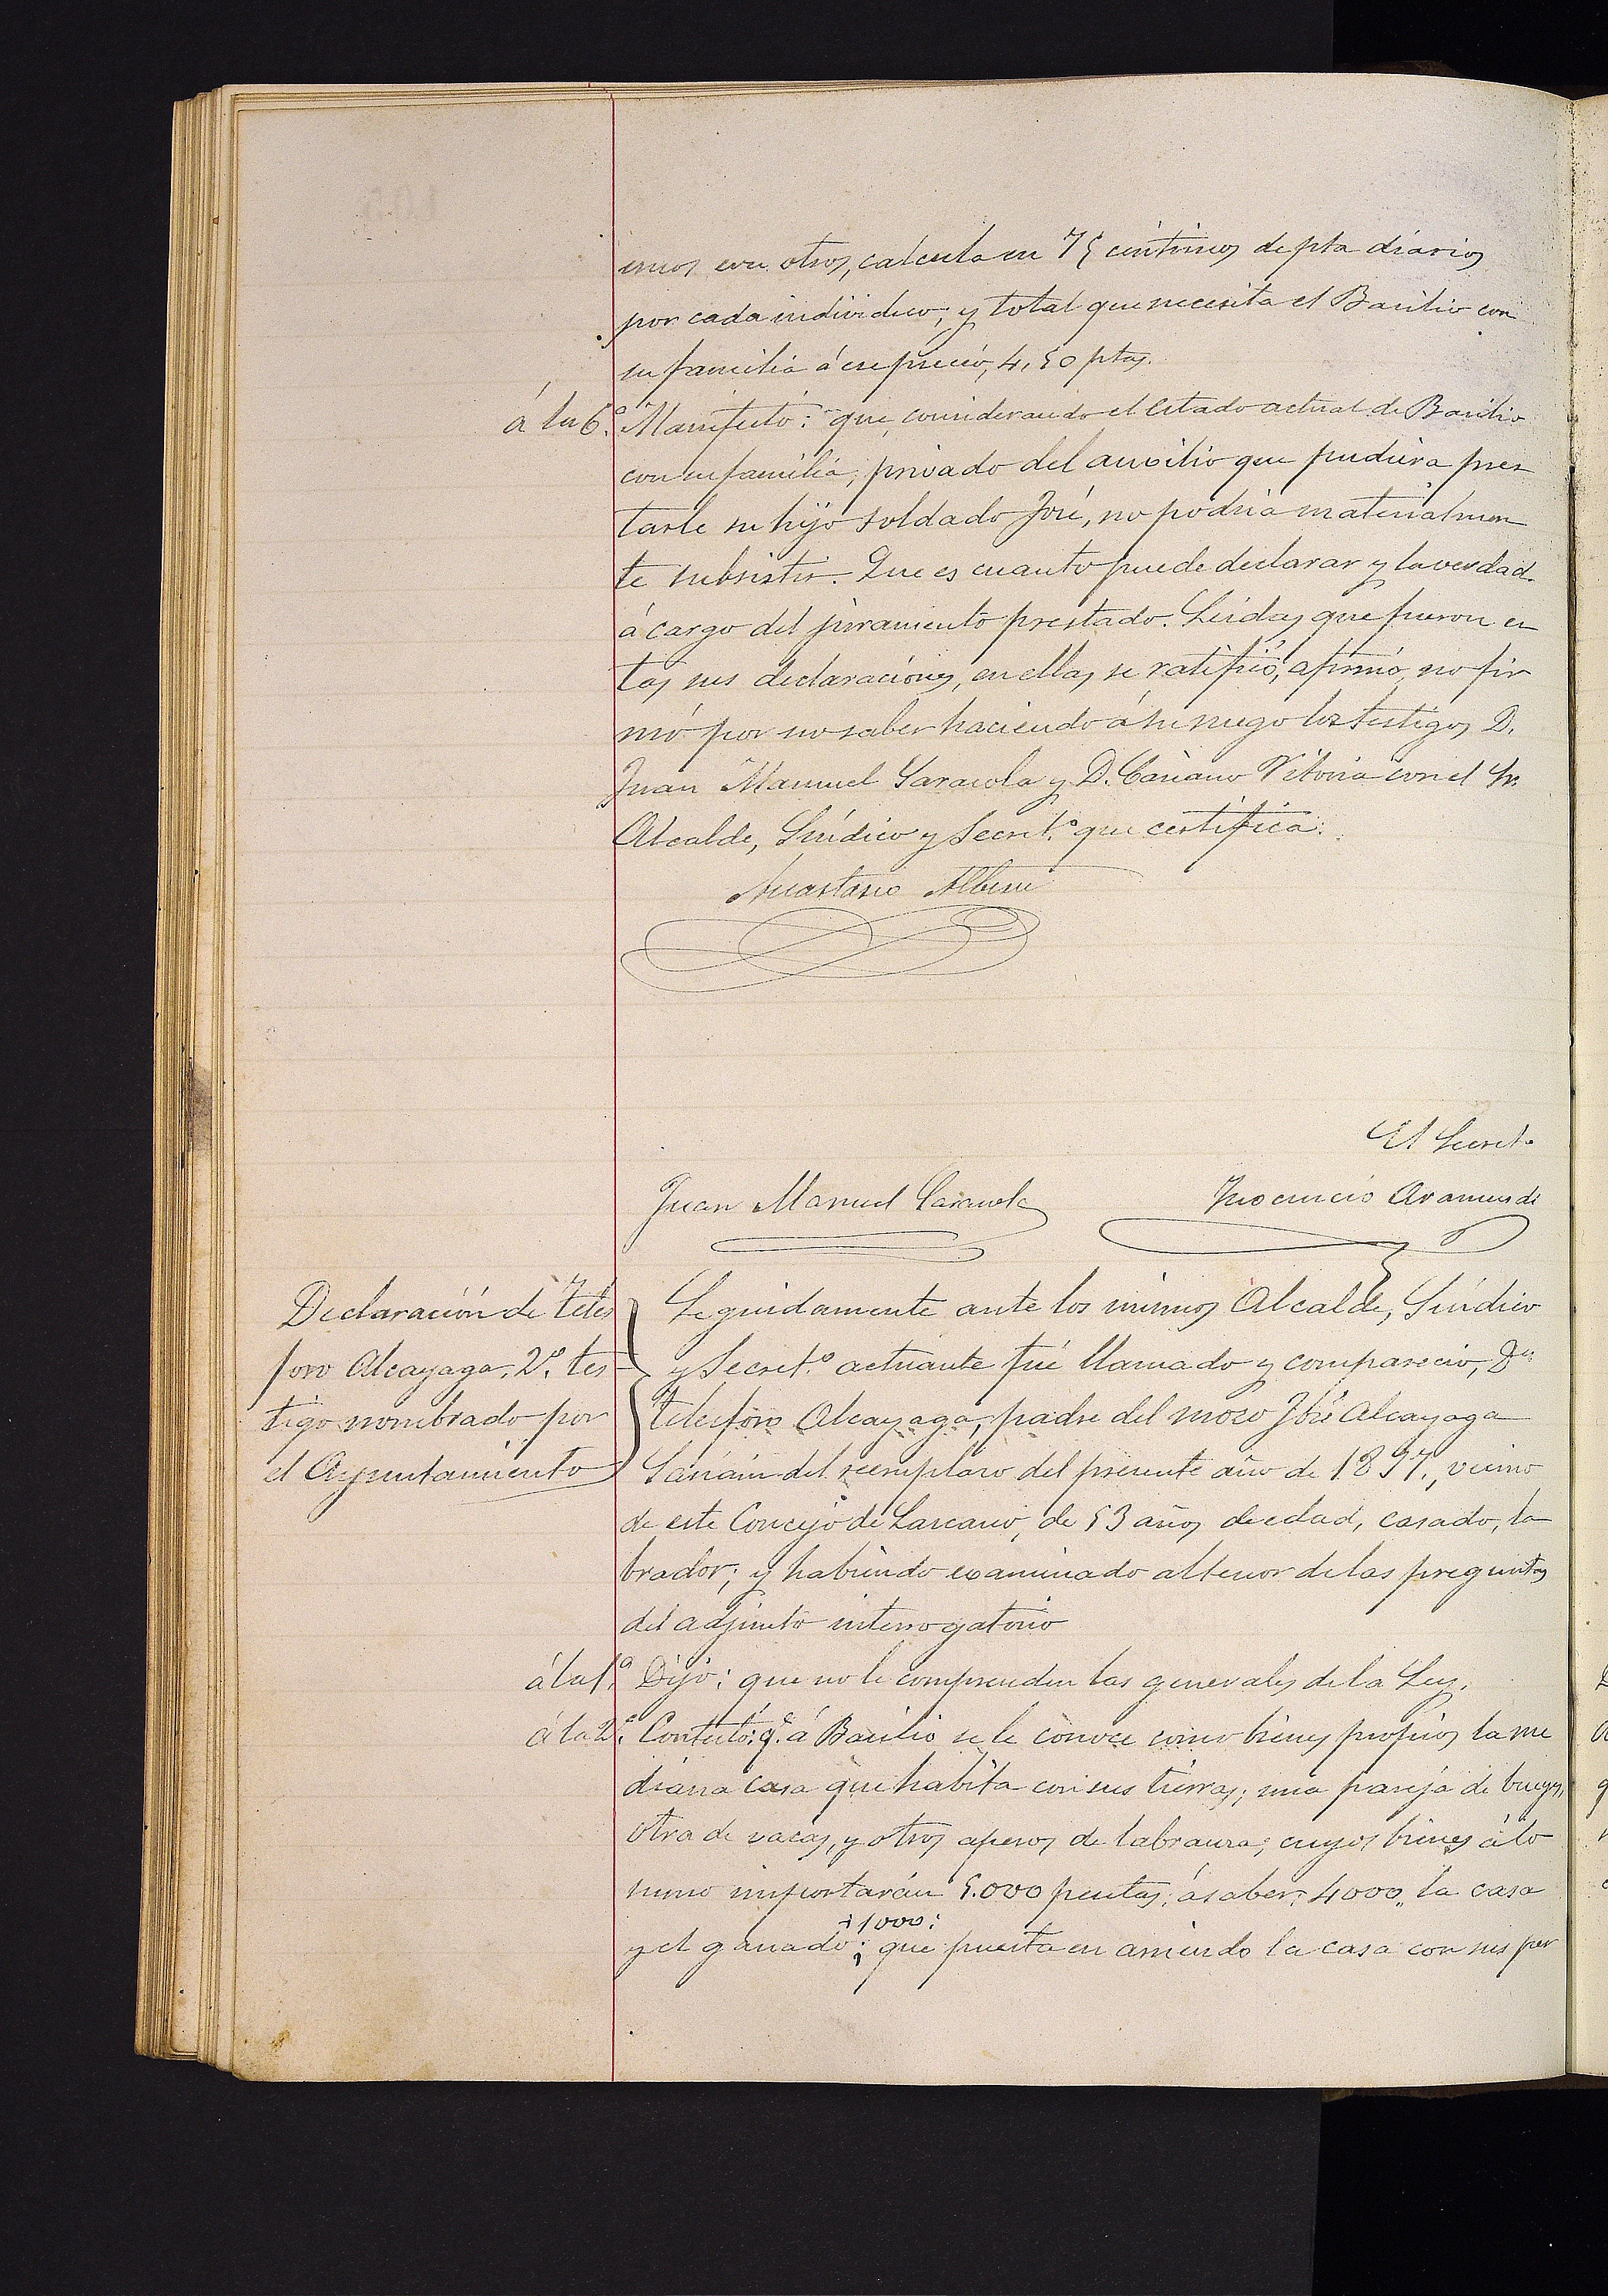 unos con otros, calcula en 75 céntimos de pta diarios
por cada individuo; y total que necesita el Basilio con
su familia á ese precio, 4,50 ptas.
á la 6.ª Manifestó: que, considerando el estado actual de Basilio
con su familia, privado del auxilio que pudiera pres
tarle su hijo soldado José, no podría materialmen
te subsistir. Que es cuanto puede declarar y la verdad
á cargo del juramento prestado. Leidas que fueron es
tas sus declaraciones, en ellas se ratificó, afirmó, no fir
mó por no saber haciendo á su ruego los testigos D.
Juan Manuel Garacola y D. Casiano Vitoria con el Sr.
Alcalde, Síndico y Secret.º que certifica.
Anastasio Albeni
El Secret.º
Juan Manuel Garacola
Inocencio Aramendi
Declaración de Teles
foro Alcayaga, 2.º tes
tigo nombrado por
el Ayuntamiento
Seguidamente ante los mismos Alcalde, Síndico
y Secret.º actuante fué llamado y compareció, Dn
Telesforo Alcayaga, padre del mozo José Alcayaga
del reemplazo del presente año de 1897, vecino
de este Concejo de Lazcano, de 53 años de edad, casado, la
brador; y habiendo examinado al tenor de las preguntas
del adjunto interrogatorio
á la 1.ª Dijo: que no le comprenden las generales de la Ley.
á la 2.ª Contestó: q.e á Basilio se le conoce como bienes propios la me
diana casa que habita con sus tierras; una pareja de bueyes,
otra de vacas, y otros aperos de labranza; cuyos bienes á lo
sumo importarán 5.000 pesetas; á saber: 4000,, la casa
+1000:
y el ganado; que puesta en arriendo la casa con sus per